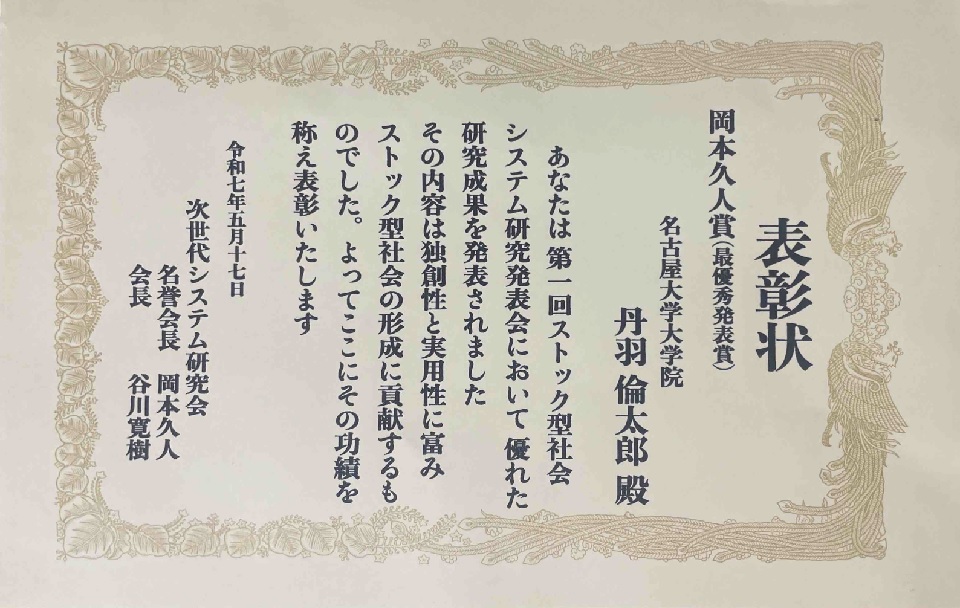 表彰状
岡本久人賞(最優秀発表賞)
名古屋大学大学院
丹羽 倫太郎 殿
あなたは 第一回ストック型社会
システム研究発表会において 優れた
研究成果を発表されました
その内容は独創性と実用性に富み
ストック型社会の形成に貢献するも
のでした。よってここにその功績を
称え表彰いたします
令和七年五月十七日
次世代システム研究会
名誉会長 岡本久人
会長 谷川寛樹